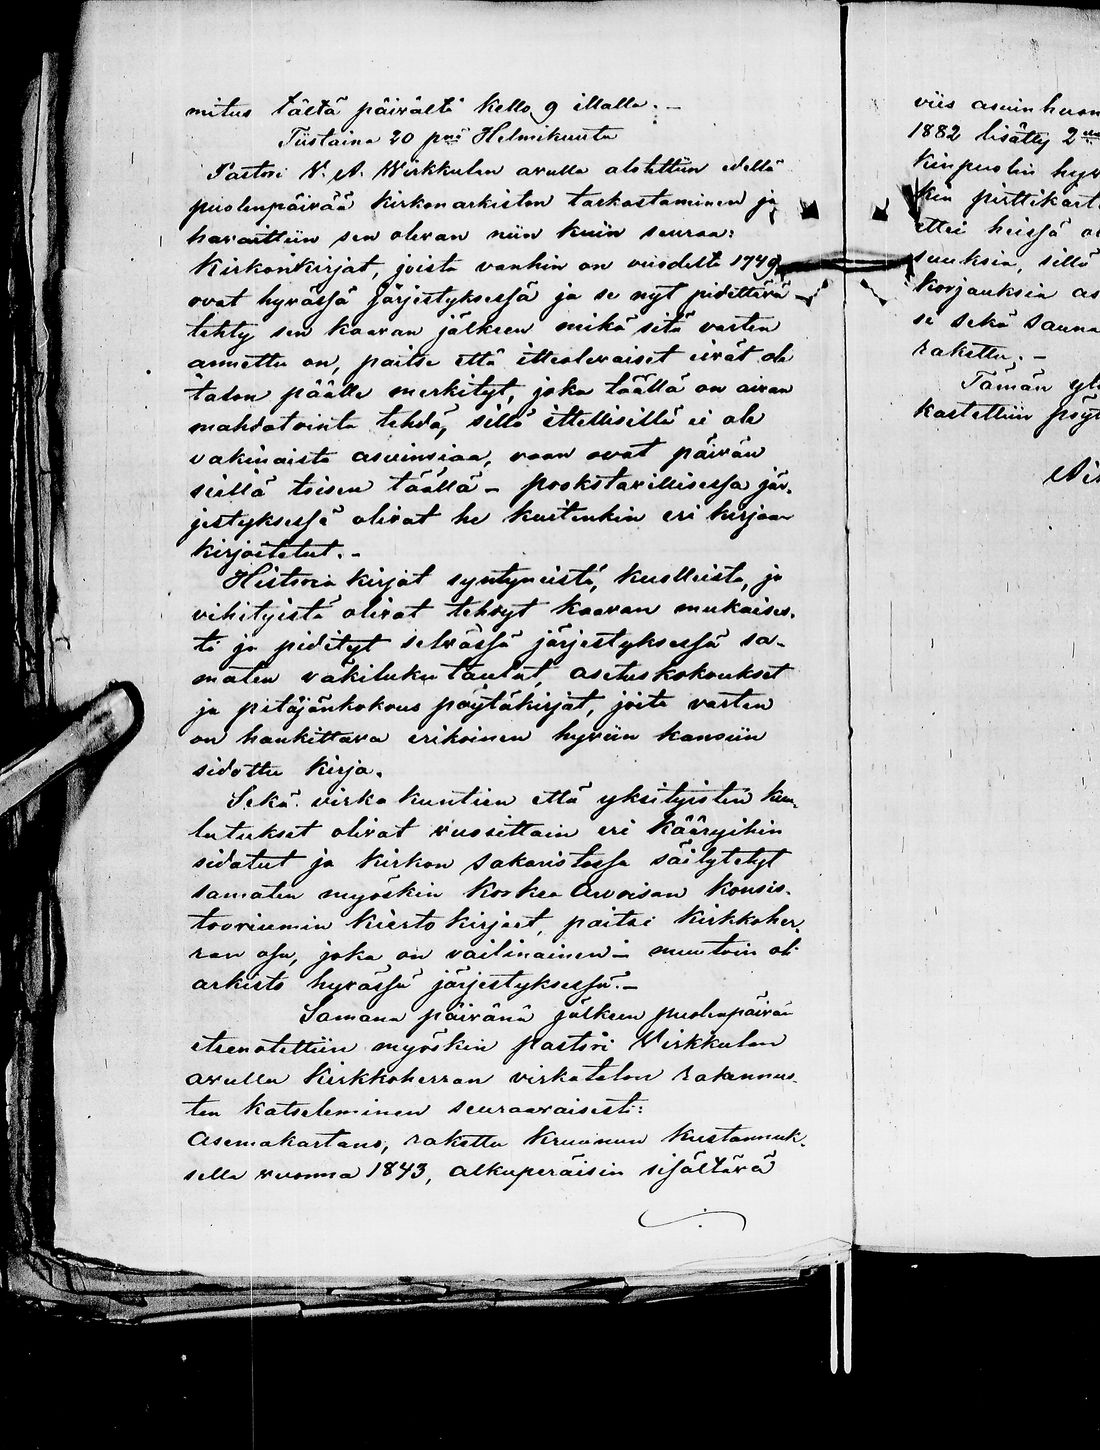 mitus tältä päivältä kello 9 illalla. –
Tiistaina 20 pnä Helmikuuta
Pastori V. A. Wirkkulan avulla alotettiin edellä
puolenpäivää kirkonarkiston tarkastaminen ja
havaittiin sen olevan niin kuin seuraa:
Kirkonkirjat, joista vanhin on vuodelta 1749,
ovat hyvässä järjestyksessä ja se nyt pidettävä
tehty sen kaavan jälkeen mikä sitä varten
annettu on, paitse että itteolevaiset eivät ole
talon päälle merkityt, joka täällä on aivan
mahdotointa tehdä, sillä ittellisillä ei ole
vakinaista asuinsiaa, vaan ovat päivän
siellä toisen täällä – pookstavillisessa jär-
jestyksessä olivat he kuitenkin eri kirjaan
kirjoitetut. –
Historia kirjat syntyneistä, kuolleista, ja
vihityistä olivat tehdyt kaavan mukaises-
ti ja pidetyt selvässä järjestyksessä sa-
maten väkiluku taulut, asetuskokoukset
ja pitäjänkokous pöytäkirjat, joita varten
on hankittava erikoinen hyviin kansiin
sidottu kirja.
Sekä virkakuntien että yksityisten kuu-
lutukset olivat vuosittain eri kääryihin
sidotut ja kirkon sakaristossa säilytetyt
samaten myöskin Korkea Arvoisan Konsis-
tooriumin kiertokirjeet, paitsi kirkkoher-
ran osa, joka on vaillinainen – muutoin oli
arkisto hyvässä järjestyksessä. –
Samana päivänä jälkeen puolenpäivän
etsenotettiin myöskin pastori Wirkkulan
avulla kirkkoherran virkatalon rakennus-
ten katseleminen seuraavaisesti:
Asemakartano, rakettu kruunun kustannuk-
sella vuonna 1843, alkuperäisin sisältävä
viis asuinhuon
1882 lisätty 2
kinpuolin hyv
kin pirttikart
ettei heissä o
suuksia, sillä
korjauksia as
se sekä sauna
rakettu. –
Tämän yl
kastettiin pöyt